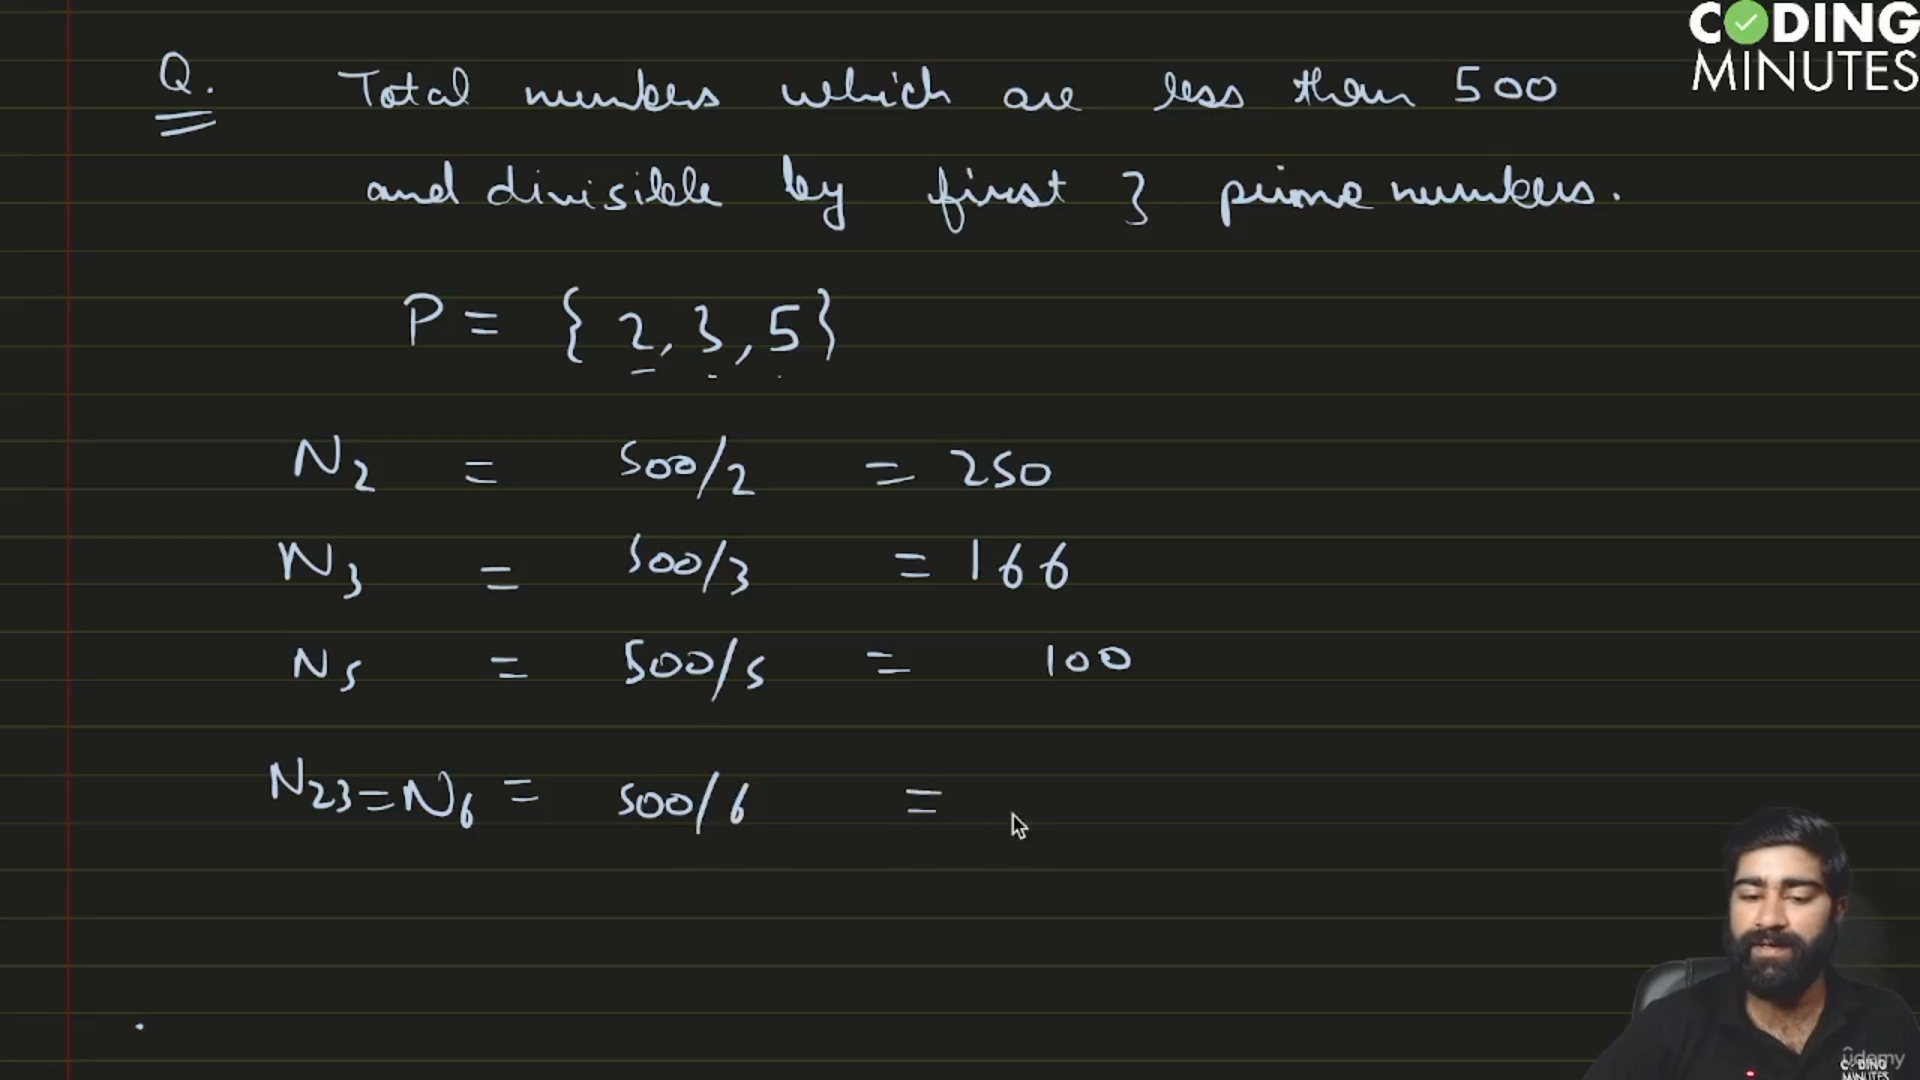 CODING
MINUTES
Q. Total numbers which are less than 500
and divisible by first 3 prime numbers.
P = { 2, 3, 5 }
N2 = 500/2 = 250
N3 = 500/3 = 166
N5 = 500/5 = 100
N23 = N6 = 500/6 =
udemy
CODING
MINUTES